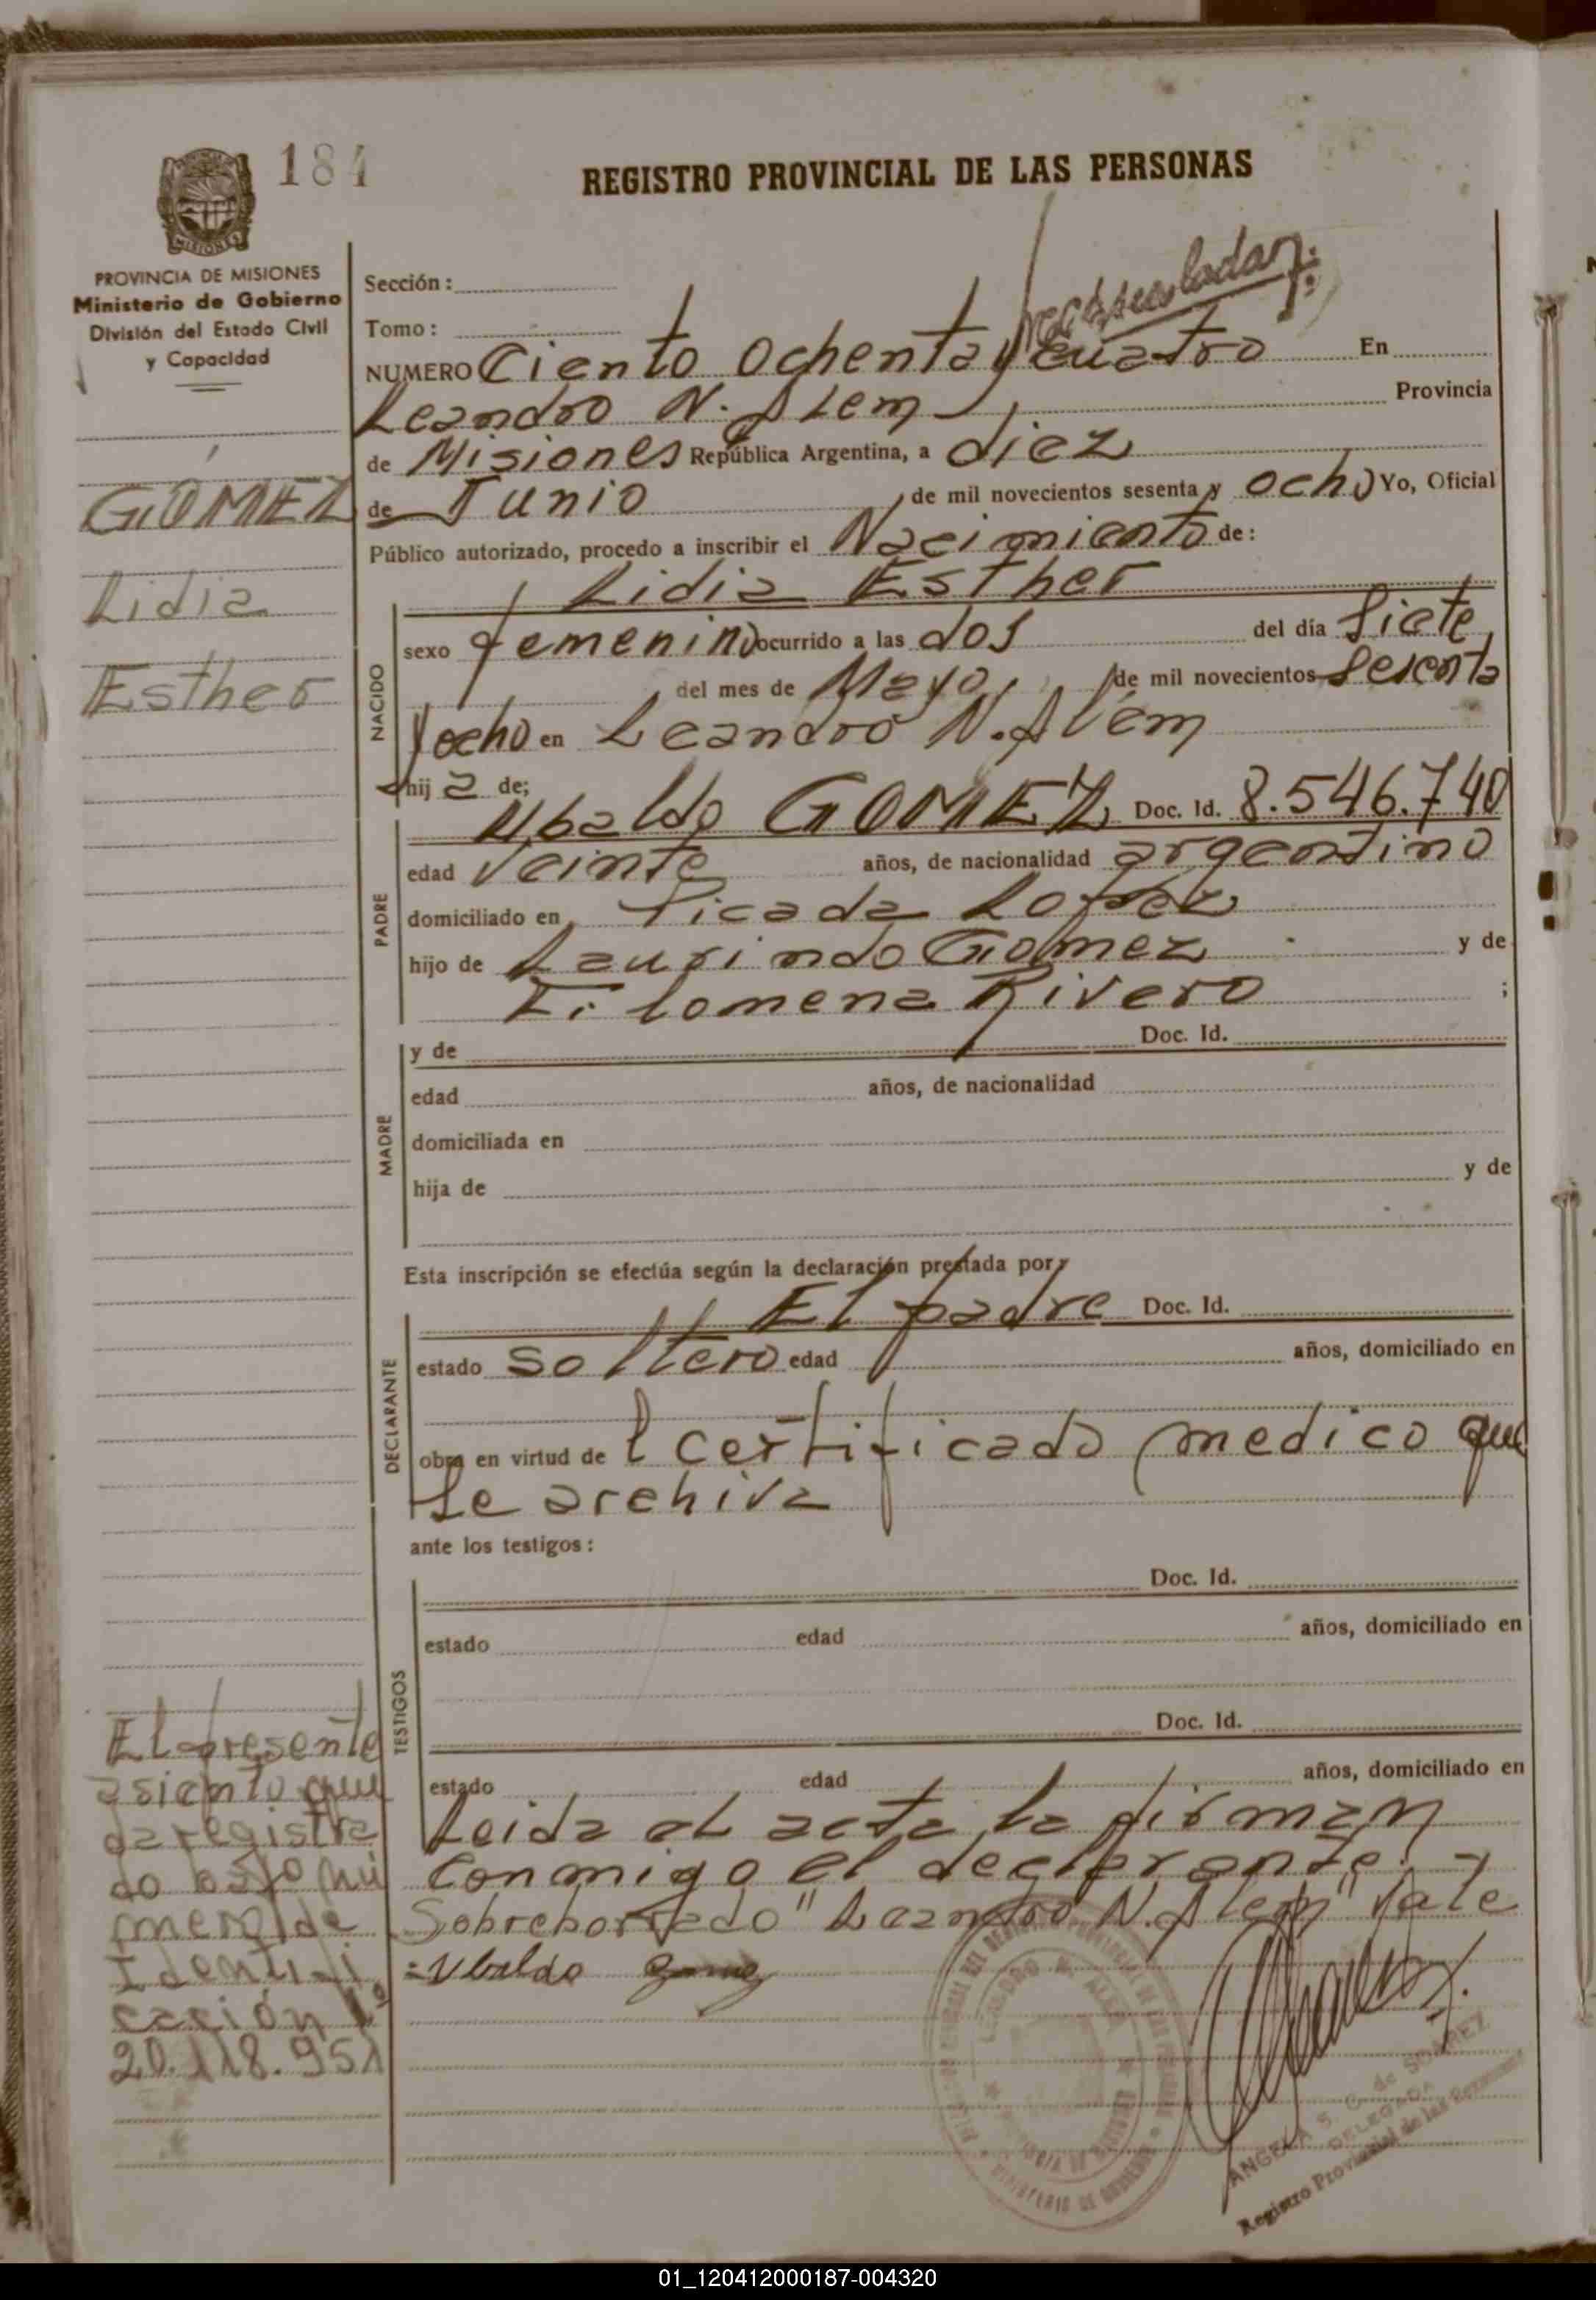 184
REGISTRO PROVINCIAL DE LAS PERSONAS
PROVINCIA DE MISIONES
Ministerio de Gobierno
División del Estado Civil
y Capacidad
GOMEZ
Lidia
Esther
Sección:
Tomo:
NUMERO Ciento Ochenta y cuatro En
Leandro N. Alem Provincia
de Misiones República Argentina, a diez
de Junio de mil novecientos sesenta y ocho Yo, Oficial
Público autorizado, procedo a inscribir el Nacimiento de:
NACIDO
Lidia Esther
sexo femenino ocurrido a las dos del día Siete
del mes de Mayo de mil novecientos Sesenta
y ocho en Leandro N. Alem
hij a de;
PADRE
Ubaldo GOMEZ Doc. Id. 8.546.740
edad Veinte años, de nacionalidad argentino
domiciliado en Picada Lopez
hijo de Laurindo Gomez y de
Filomena Rivero ;
MADRE
y de Doc. Id.
edad años, de nacionalidad
domiciliada en
hija de y de
Esta inscripción se efectúa según la declaración prestada por
DECLARANTE
El padre Doc. Id.
estado soltero edad años, domiciliado en
obra en virtud de l certificado medico que
se archiva
ante los testigos:
TESTIGOS
Doc. Id.
estado edad años, domiciliado en
Doc. Id.
estado edad años, domiciliado en
Leida el acta la firman
conmigo el declarante. -
Sobreborrado "Leandro N. Alem" Vale
=Ubaldo
El presente
asiento que
da registra
do bajo nú
mero de
Identifi
cación
20.118.951
ANGELA S. C. de SOAREZ
DELEGADA
Registro Provincial de las Personas
01_120412000187-004320